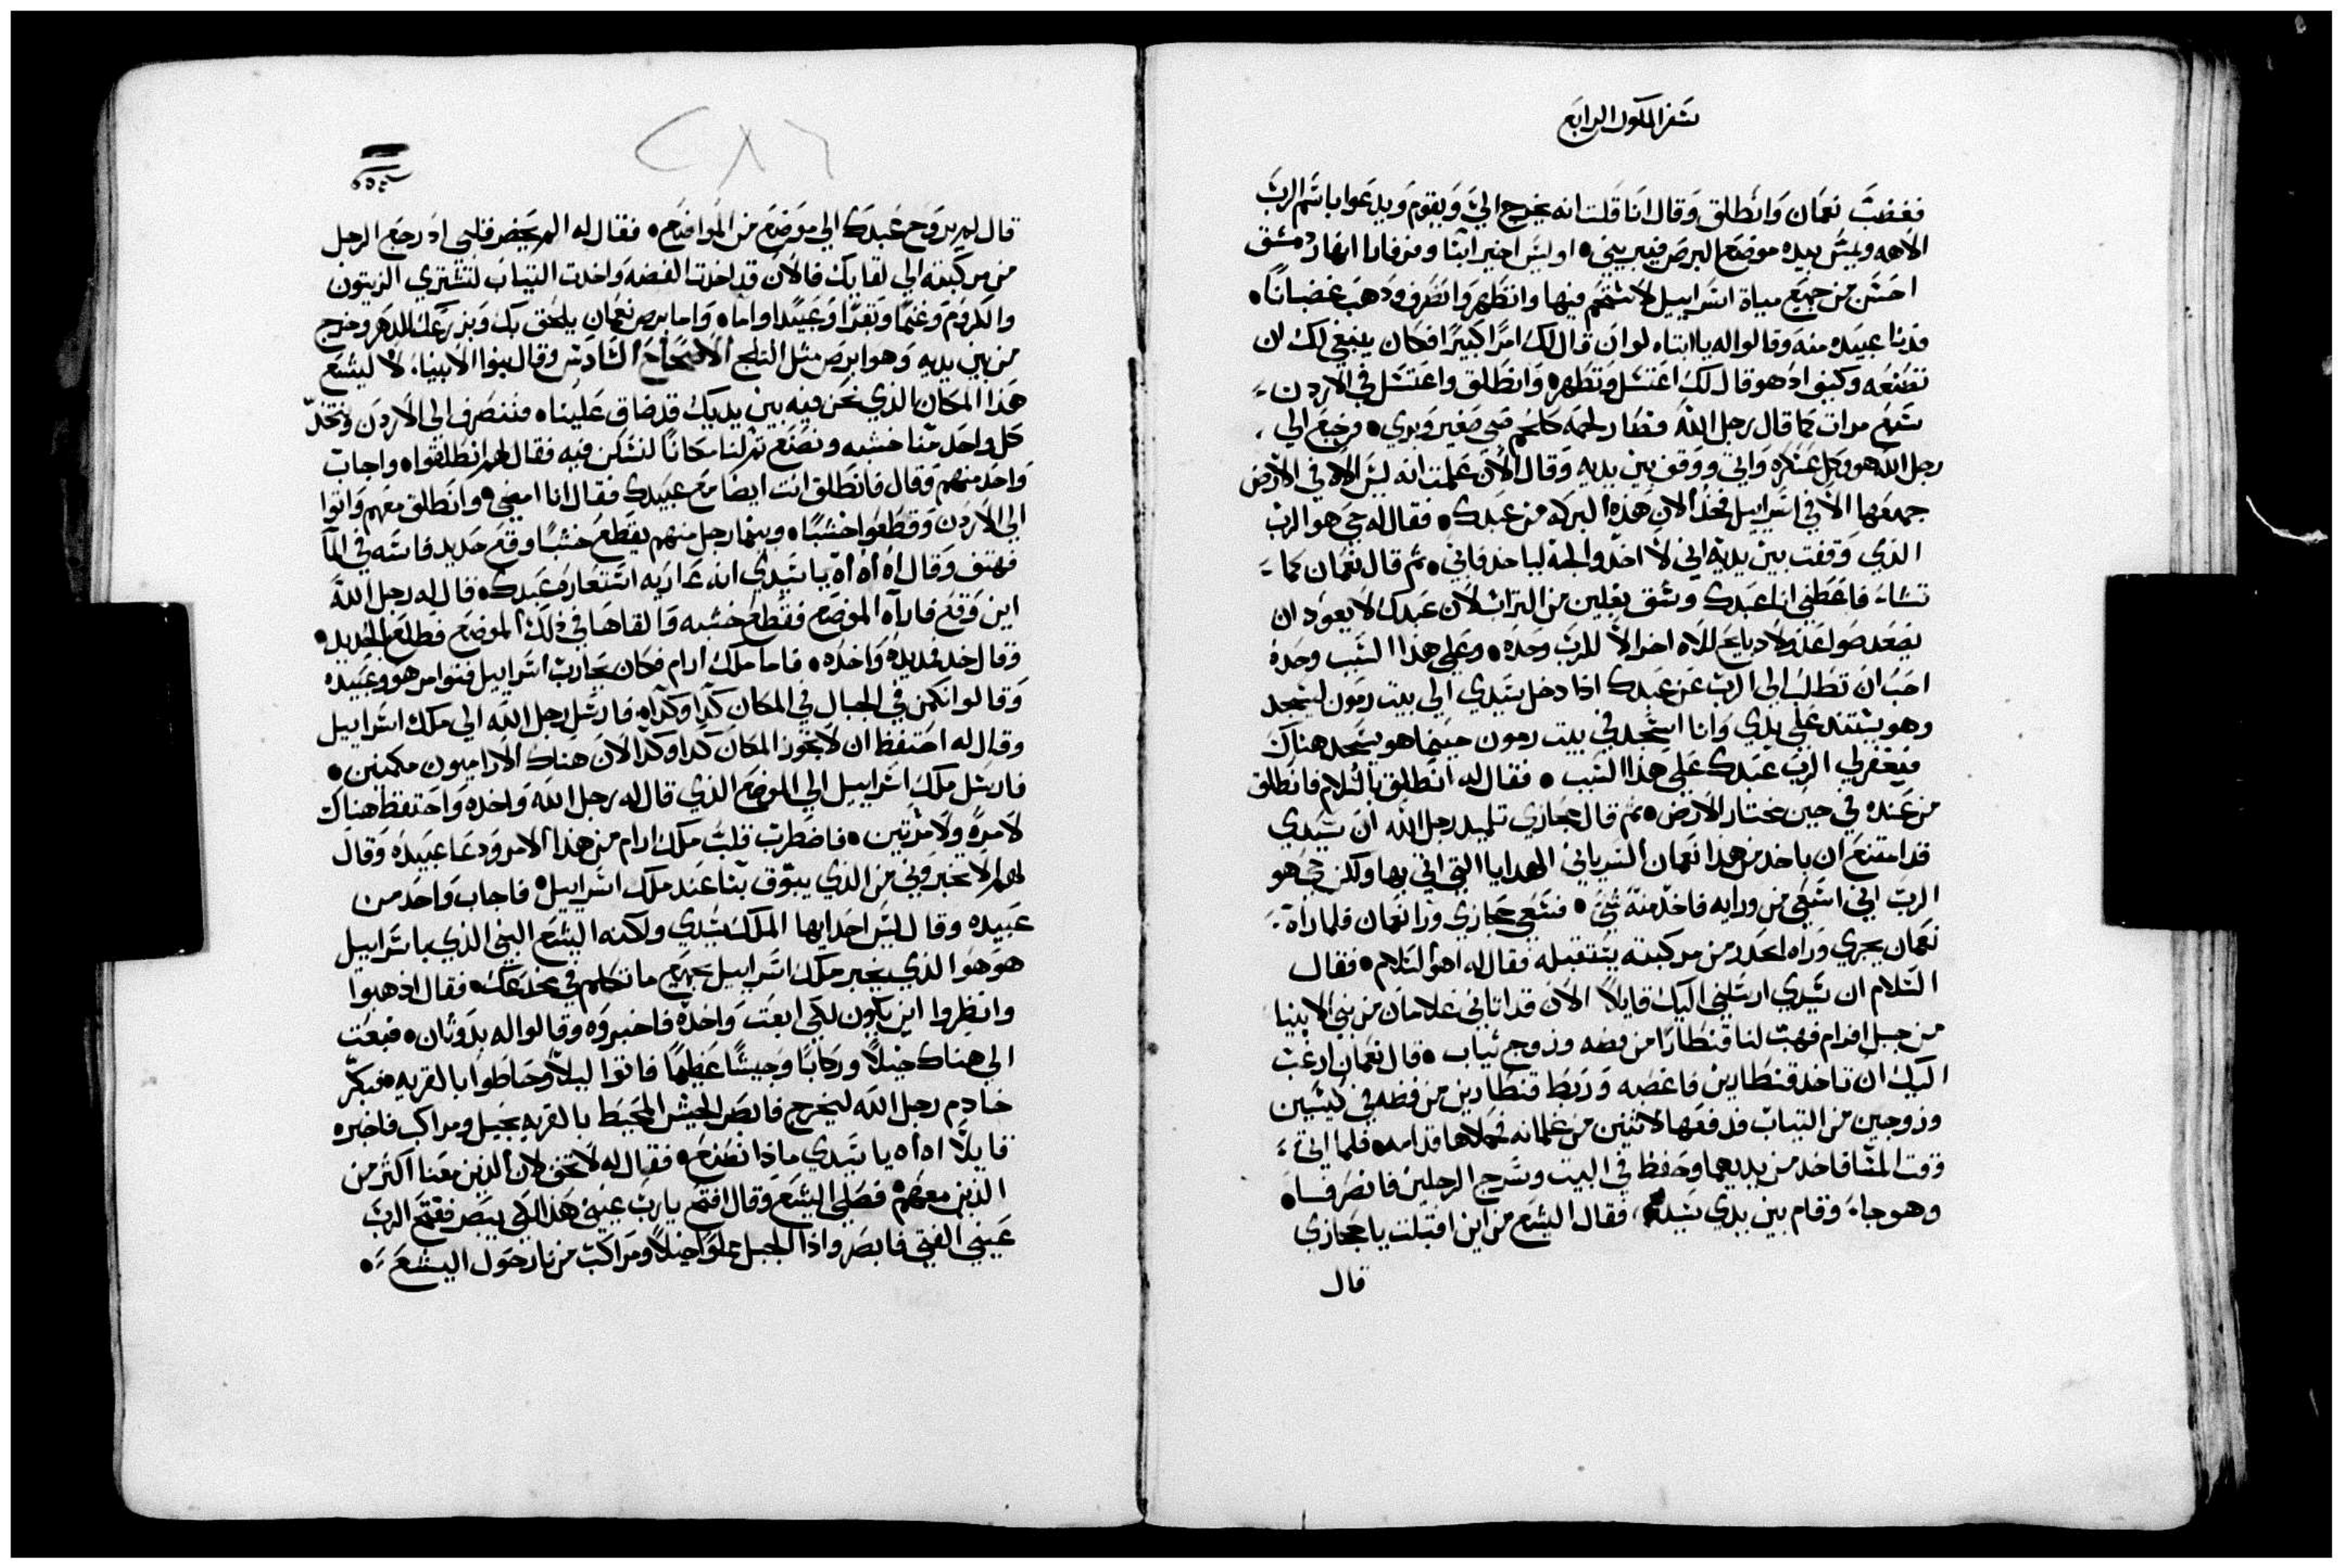 سفر الملوك الرابع
فغضب نعمان وانطلق وقال انا قلت انه يخرج الي ويقوم ويدعوا باسم الرب
الاهه ويمس بيده موضع البرص فيبريني • اوليس اخير ابنا وفرفارا انهار دمشق
احسن من جميع مياة اسراييل لاستحم فيها واتطهر وانصرف ودهب غضبانًا •
فدنا عبيده منه وقالوا له يا ابتاه لو ان قال لك امرًا كبيرًا فكان ينبغي لك ان
تصنعه وكيوا اد هو قال لك اغتسل وتطهر • وانطلق واغتسل في الاردن
سبع مرات كما قال رجل الله فصار لحمه كلحم صبي صغير وبري • فرجع الي
رجل الله هو وكل عسكره واتي ووقف بين يديه وقال الان علمت انه ليس الاه في الارض
جميعها الا في اسراييل فخد الان هذه البركه من عبدك • فقال له حي هو الرب
الذي وقفت بين يديه اني لا اخد والجه لياخد فابي • ثم قال نعمان كما
تشاء فاعطني انا عبدك وسق بغلين من التراب لان عبدك لا يعود ان
يصعد صواعد ولا دبايح لالاه اخر الا للرب وحده • وعلي هذا السبب وحده
احب ان تطلب الي الرب عن عبدك ادا دخل سيدي الي بيت رمون ليسجد
وهو يستند علي يدي وانا اسجد في بيت رمون حينما هو يسجد هناك
فيغفر لي الرب عبدك علي هذا السبب • فقال له انطلق بالسلام فانطلق
من عنده في حين مختار الارض • ثم قال جحازي تلميد رجل الله ان سيدي
قد امتنع ان ياخد من هذا نعمان السرياني الهدايا التي اتي بها ولكن حي هو
الرب اني اسعي من ورايه فاخد منه شي • فسعي جحازي ورا نعمان فلما راه
نعمان يجري وراه انحدر من مركبته يستقبله فقال له اهو السلام • فقال
السلام ان سيدي ارسلني اليك قايلاً الان قد اتاني غلامان من بني الانبيا
من جبل افرام فهب لنا قنطارًا من فضه وزوج تياب • قال نعمان ارغب
اليك ان تاخد قنطارين فاغصبه وربط قنطارين من فضه في كيسين
وزوجين من التياب فدفعها لاتنين من غلمانه فحملاها قدامه • فلما اتي
وقت المسا فاخد من يديهما وحفظ في البيت وسرح الرجلين فانصرفا •
وهو جاء وقام بين يدي سيده، فقال اليشع من اين اقبلت يا جحازي
قال
قال لم يروح عبدك الي موضع من المواضع • فقال له الم يحضر قلبي اد رجع الرجل
من مركبته الي لقايك فالان قد اخدت الفضه واخدت التياب لتشتري الزيتون
والكروم وغنمًا وبقرًا وعبيدًا واماء • واما برص نعمان يلحق بك وبزرعك للدهر وخرج
من بين يديه وهو ابرص متل التلج الاصحاح السادس وقال بنوا الانبياء لاليشع
هذا المكان الذي نحن فيه بين يديك قد ضاق علينا • فننصرف الي الاردن وتخذ
كل واحد منا خشبه ونصنع تم لنا مكانًا لنسكن فيه فقال لهم انطلقوا • واجاب
واحد منهم وقال فانطلق انت ايضًا مع عبيدك فقال انا امضي • وانطلق معهم واتوا
الي الاردن وقطعوا خشبًا • وبينما رجل منهم يقطع خشبًا وقع حديد فاسه في الما
فهتف وقال اه اه اه يا سيدي انه عاريه استعاره عبدك • قال له رجل الله
اين وقع فاراه الموضع فقطع خشبه والقاها في ذلك الموضع فطلع الحديد •
وقال خد فمد يده واخده • فاما ملك ارام فكان يحارب اسراييل فتوامر هو وعبيده
وقالوا نكمن في الجبال في المكان كدا وكدا • فارسل رجل الله الي ملك اسراييل
وقال له احتفظ ان لا تجوز المكان كدا وكدا لان هناك الاراميون مكمنين •
فارسل ملك اسراييل الي الموضع الذي قال له رجل الله واخده واحتفظ هناك
لا مرة ولا مرتين • فاضطرب قلب ملك ارام من هذا الامر ودعا عبيده وقال
لهم لا تخبروني من الذي يبوق بنا عند ملك اسراييل • فاجاب واحد من
عبيده وقال ليس احد ايها الملك سيدي ولكنه اليشع النبي الذي باسراييل
هو هوا الذي يخبر ملك اسراييل بجميع ما تكلم في مخدعك • فقال ادهبوا
وانظروا اين يكون لكي ابعت واخده فاخبروه وقالوا له بدوتان • فبعت
الي هناك خيلاً وركابًا وجيشًا عظيمًا فاتوا ليلاً وحاطوا بالقريه • فبكر
خادم رجل الله ليخرج فابصر الجيش المحيط بالقريه بخيل ومراكب فاخبره
قايلاً اه اه يا سيدي مادا نصنع • فقال له لا تخف لان الذين معنا اكثر من
الذين معهم فصلي اليشع وقال افتح يا رب عيني هذا لكي يبصر ففتح الرب
عيني الفتي فابصر وادا الجبل مملوا خيلاً ومراكب من نار حول اليشع •